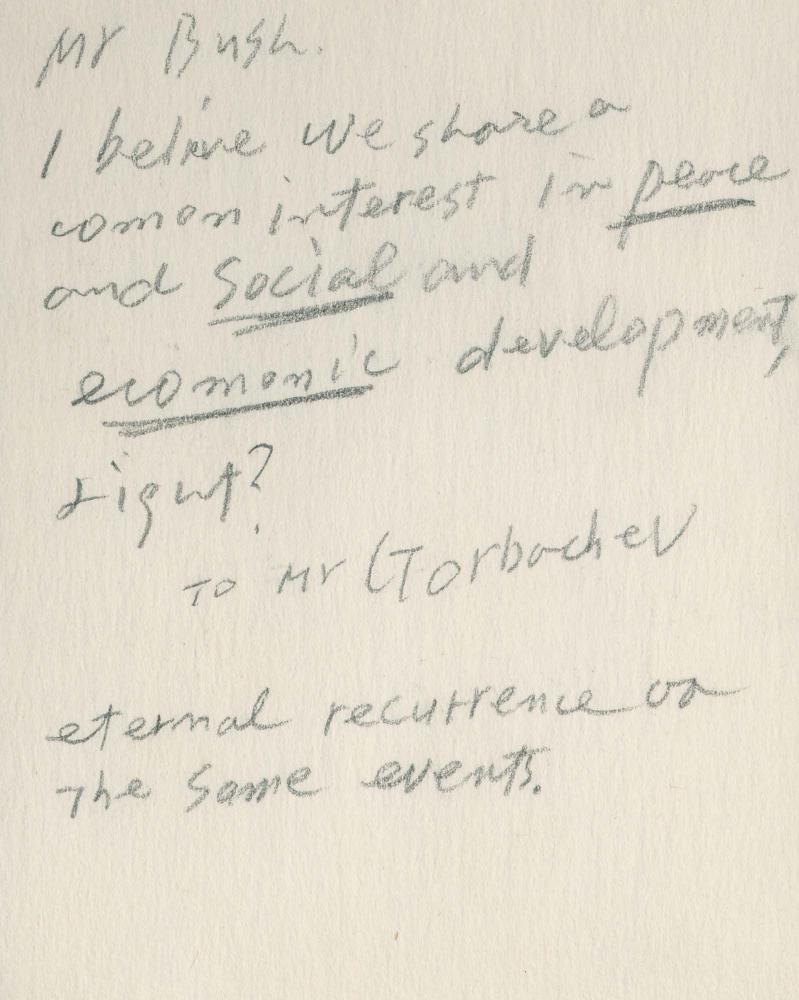 Mr Bush.
I belive we share a
comon interest in peace
and social and
economic development,
right?
To Mr Gorbachev
eternal recurrence on
the same events.